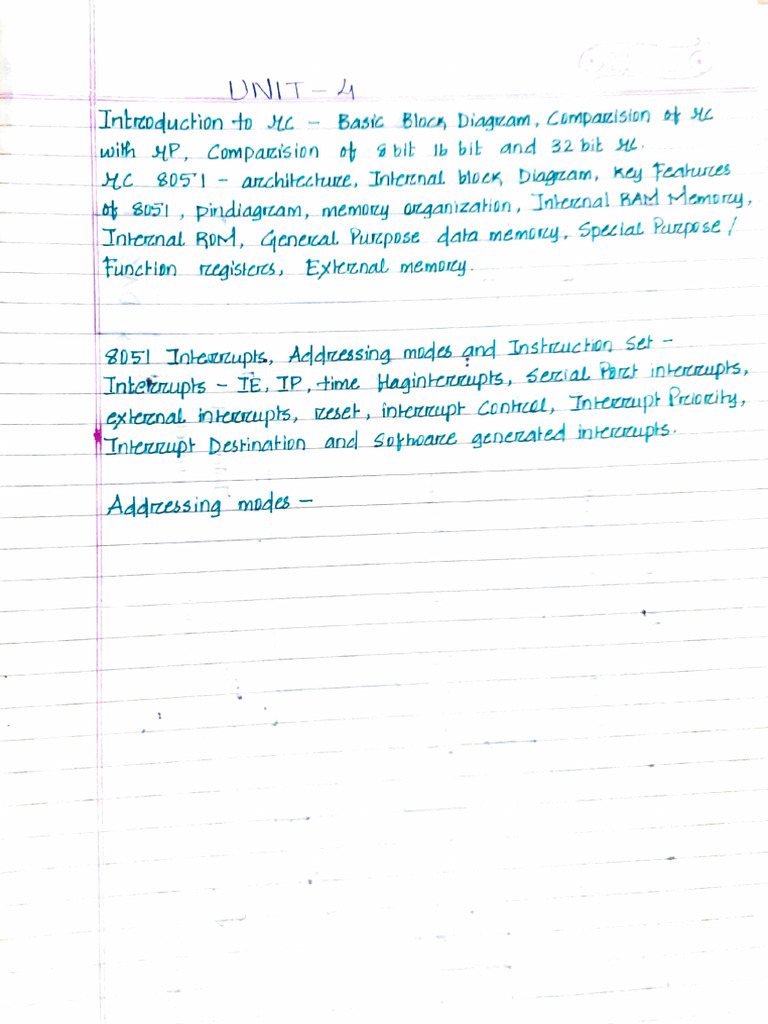 UNIT - 4
Introduction to MC - Basic Block Diagram, Comparision of MC
with MP, Comparision of 8 bit 16 bit and 32 bit MC.
MC 8051 - architecture, Internal block Diagram, key Features
of 8051, pindiagram, memory organization, Internal RAM Memory,
Internal ROM, General Purpose data memory, Special Purpose /
Function registers, External memory.
8051 Interrupts, Addressing modes and Instruction Set -
Interrupts - IE, IP, time flaginterrupts, Serial Port interrupts,
external interrupts, reset, interrupt Control, Interrupt Priority,
Interrupt Destination and Software generated interrupts.
Addressing modes -